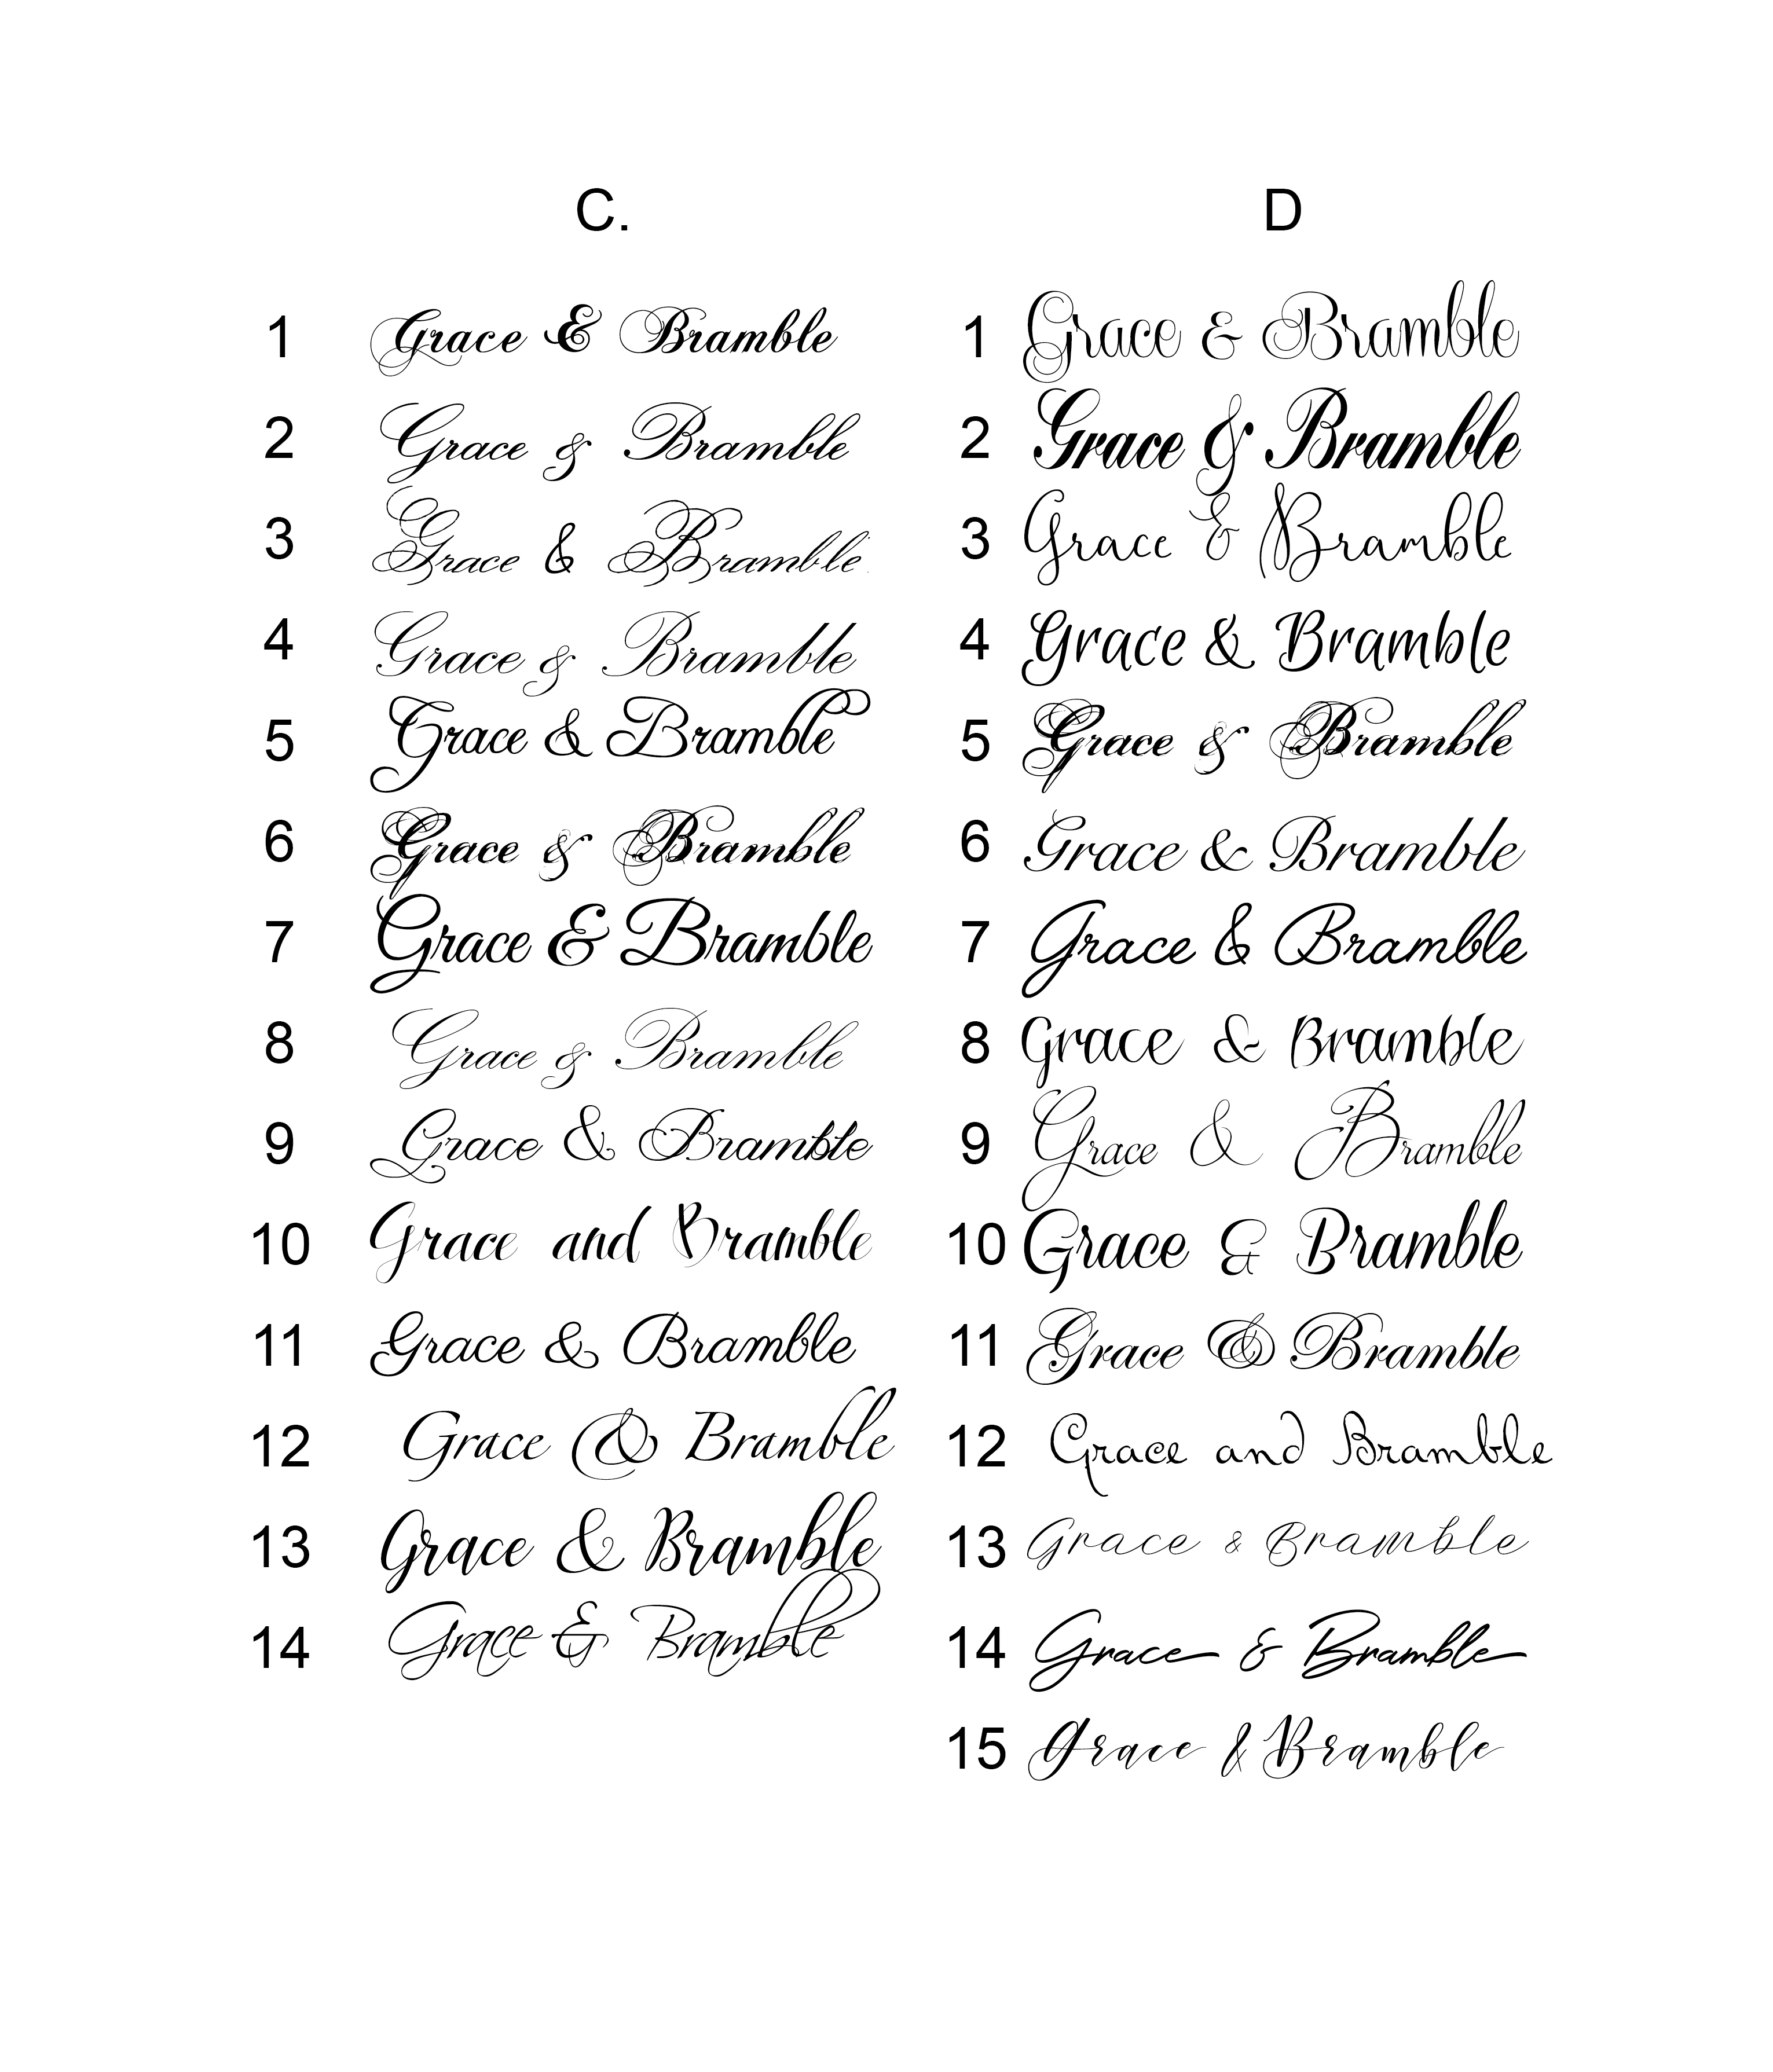 C.
1 Grace & Bramble
2 Grace & Bramble
3 Grace & Bramble
4 Grace & Bramble
5 Grace & Bramble
6 Grace & Bramble
7 Grace & Bramble
8 Grace & Bramble
9 Grace & Bramble
10 Grace and Bramble
11 Grace & Bramble
12 Grace & Bramble
13 Grace & Bramble
14 Grace & Bramble
D
1 Grace & Bramble
2 Grace & Bramble
3 Grace & Bramble
4 Grace & Bramble
5 Grace & Bramble
6 Grace & Bramble
7 Grace & Bramble
8 Grace & Bramble
9 Grace & Bramble
10 Grace & Bramble
11 Grace & Bramble
12 Grace and Bramble
13 Grace & Bramble
14 Grace & Bramble
15 Grace & Bramble